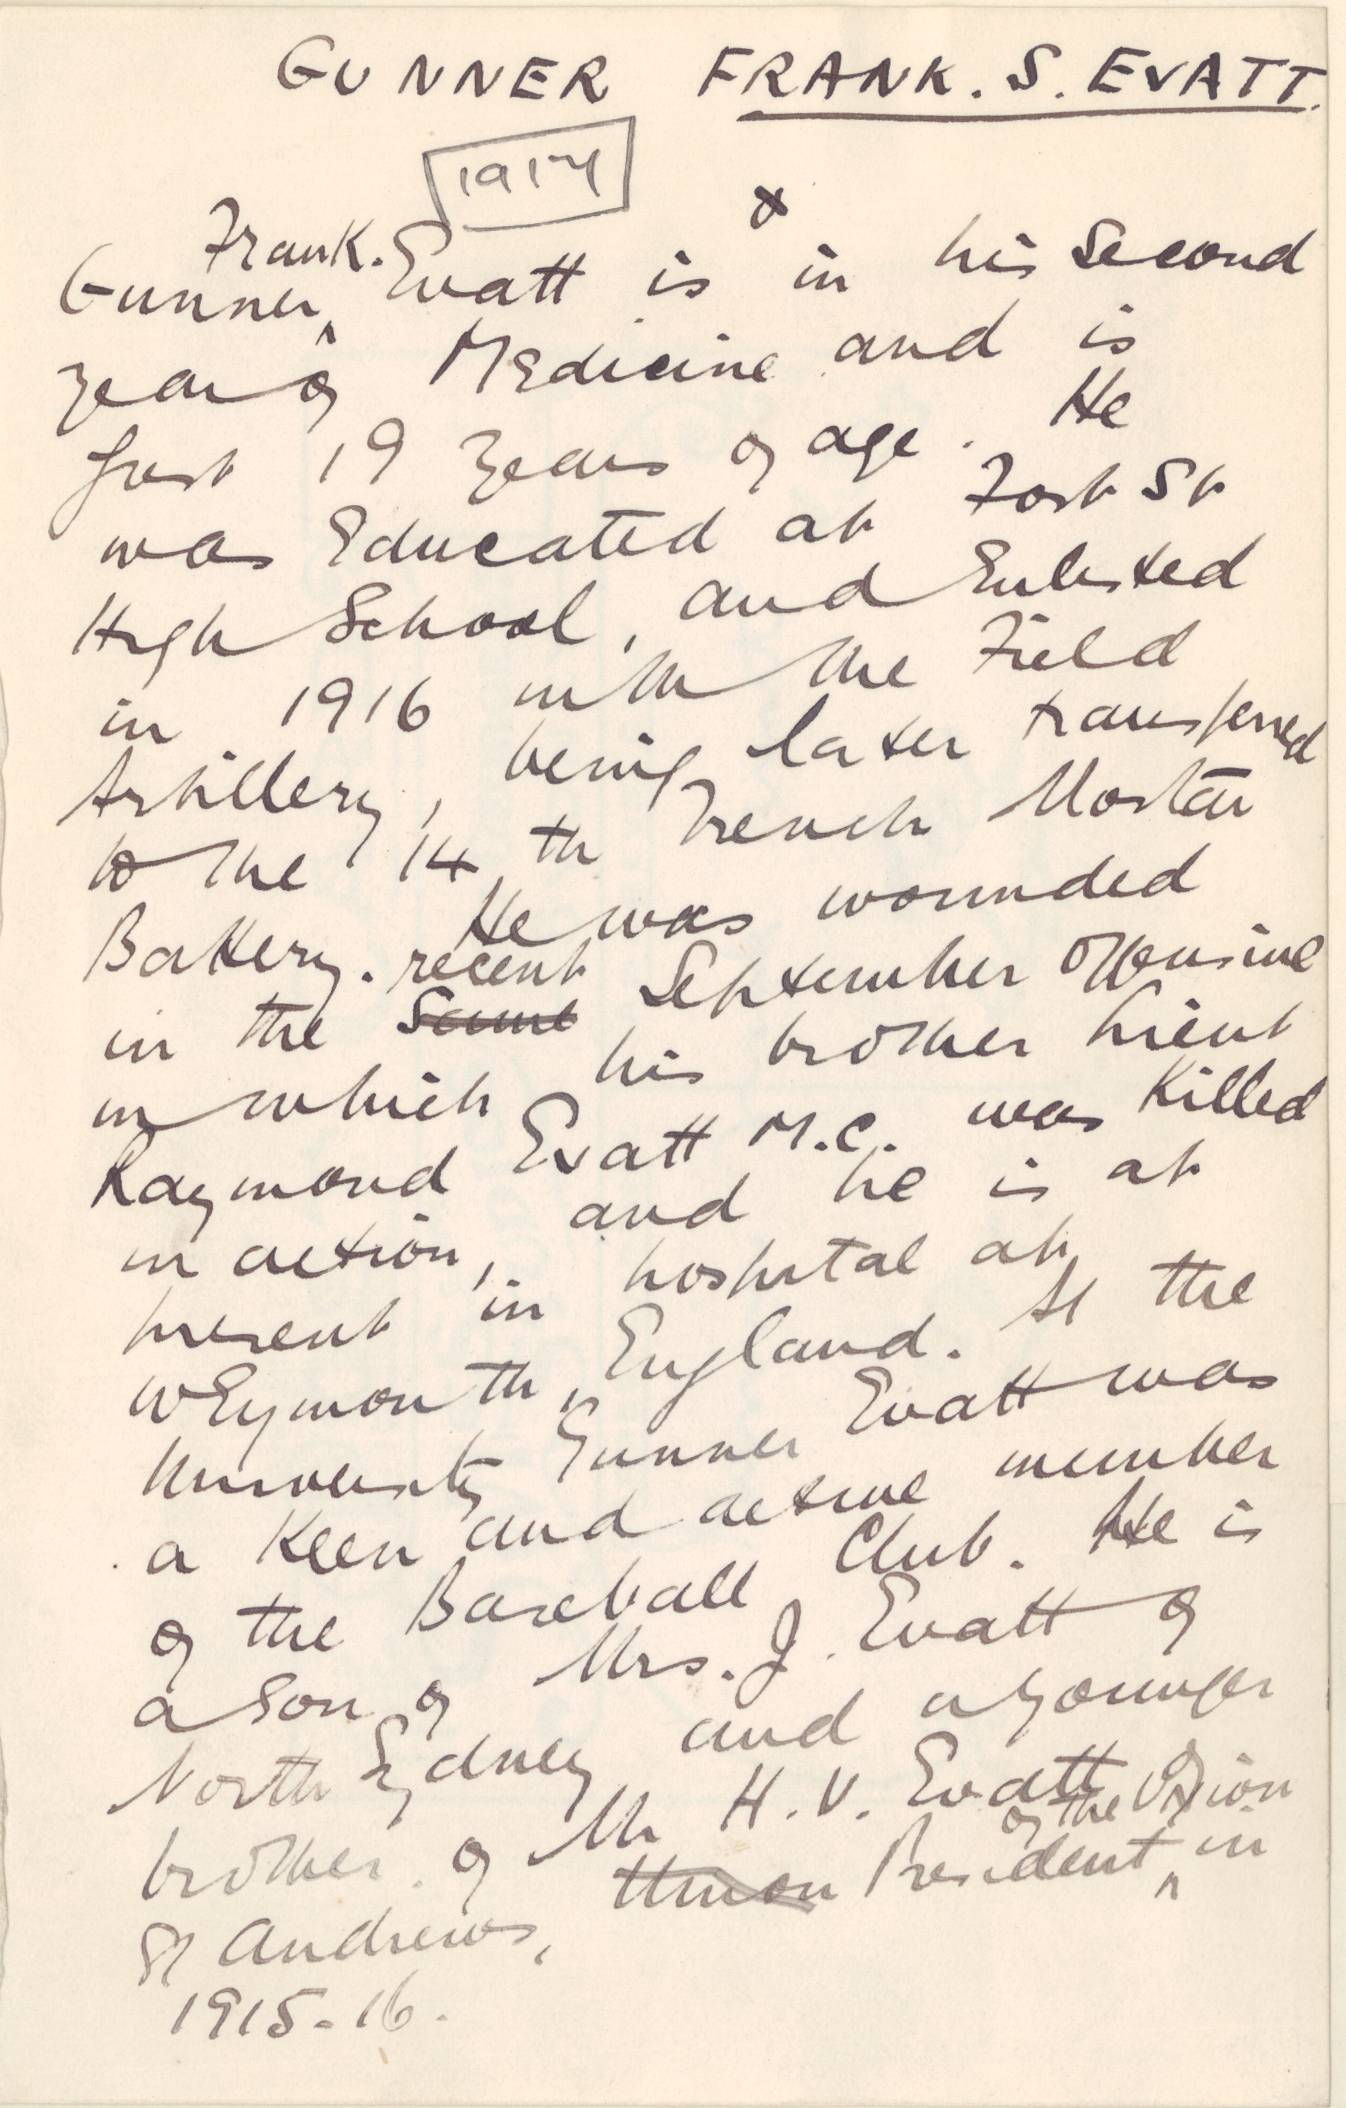 GUNNER FRANK. S. EVATT.
1917
Frank.
Gunner Evatt is in his second
year of Medicine and is
just 19 years of age. He
was Educated at Fort St
High School, and Enlisted
in 1916 with the Field
Artillery, being later transferred
to the 14th Trench Mortar
Battery. He was wounded
recent
in the Same September offensive
in which his brother Lieut
Raymond Evatt M.C. was Killed
in action, and he is at
present in hospital at
Weymouth, England. At the
University Gunner Evatt was
a Keen and active member
of the Baseball Club. He is
a son of Mrs. J. Evatt of
North Sydney and a younger
brother of Mr H. V. Evatt
of the Union
Union President in
St Andrews,
1915-16.